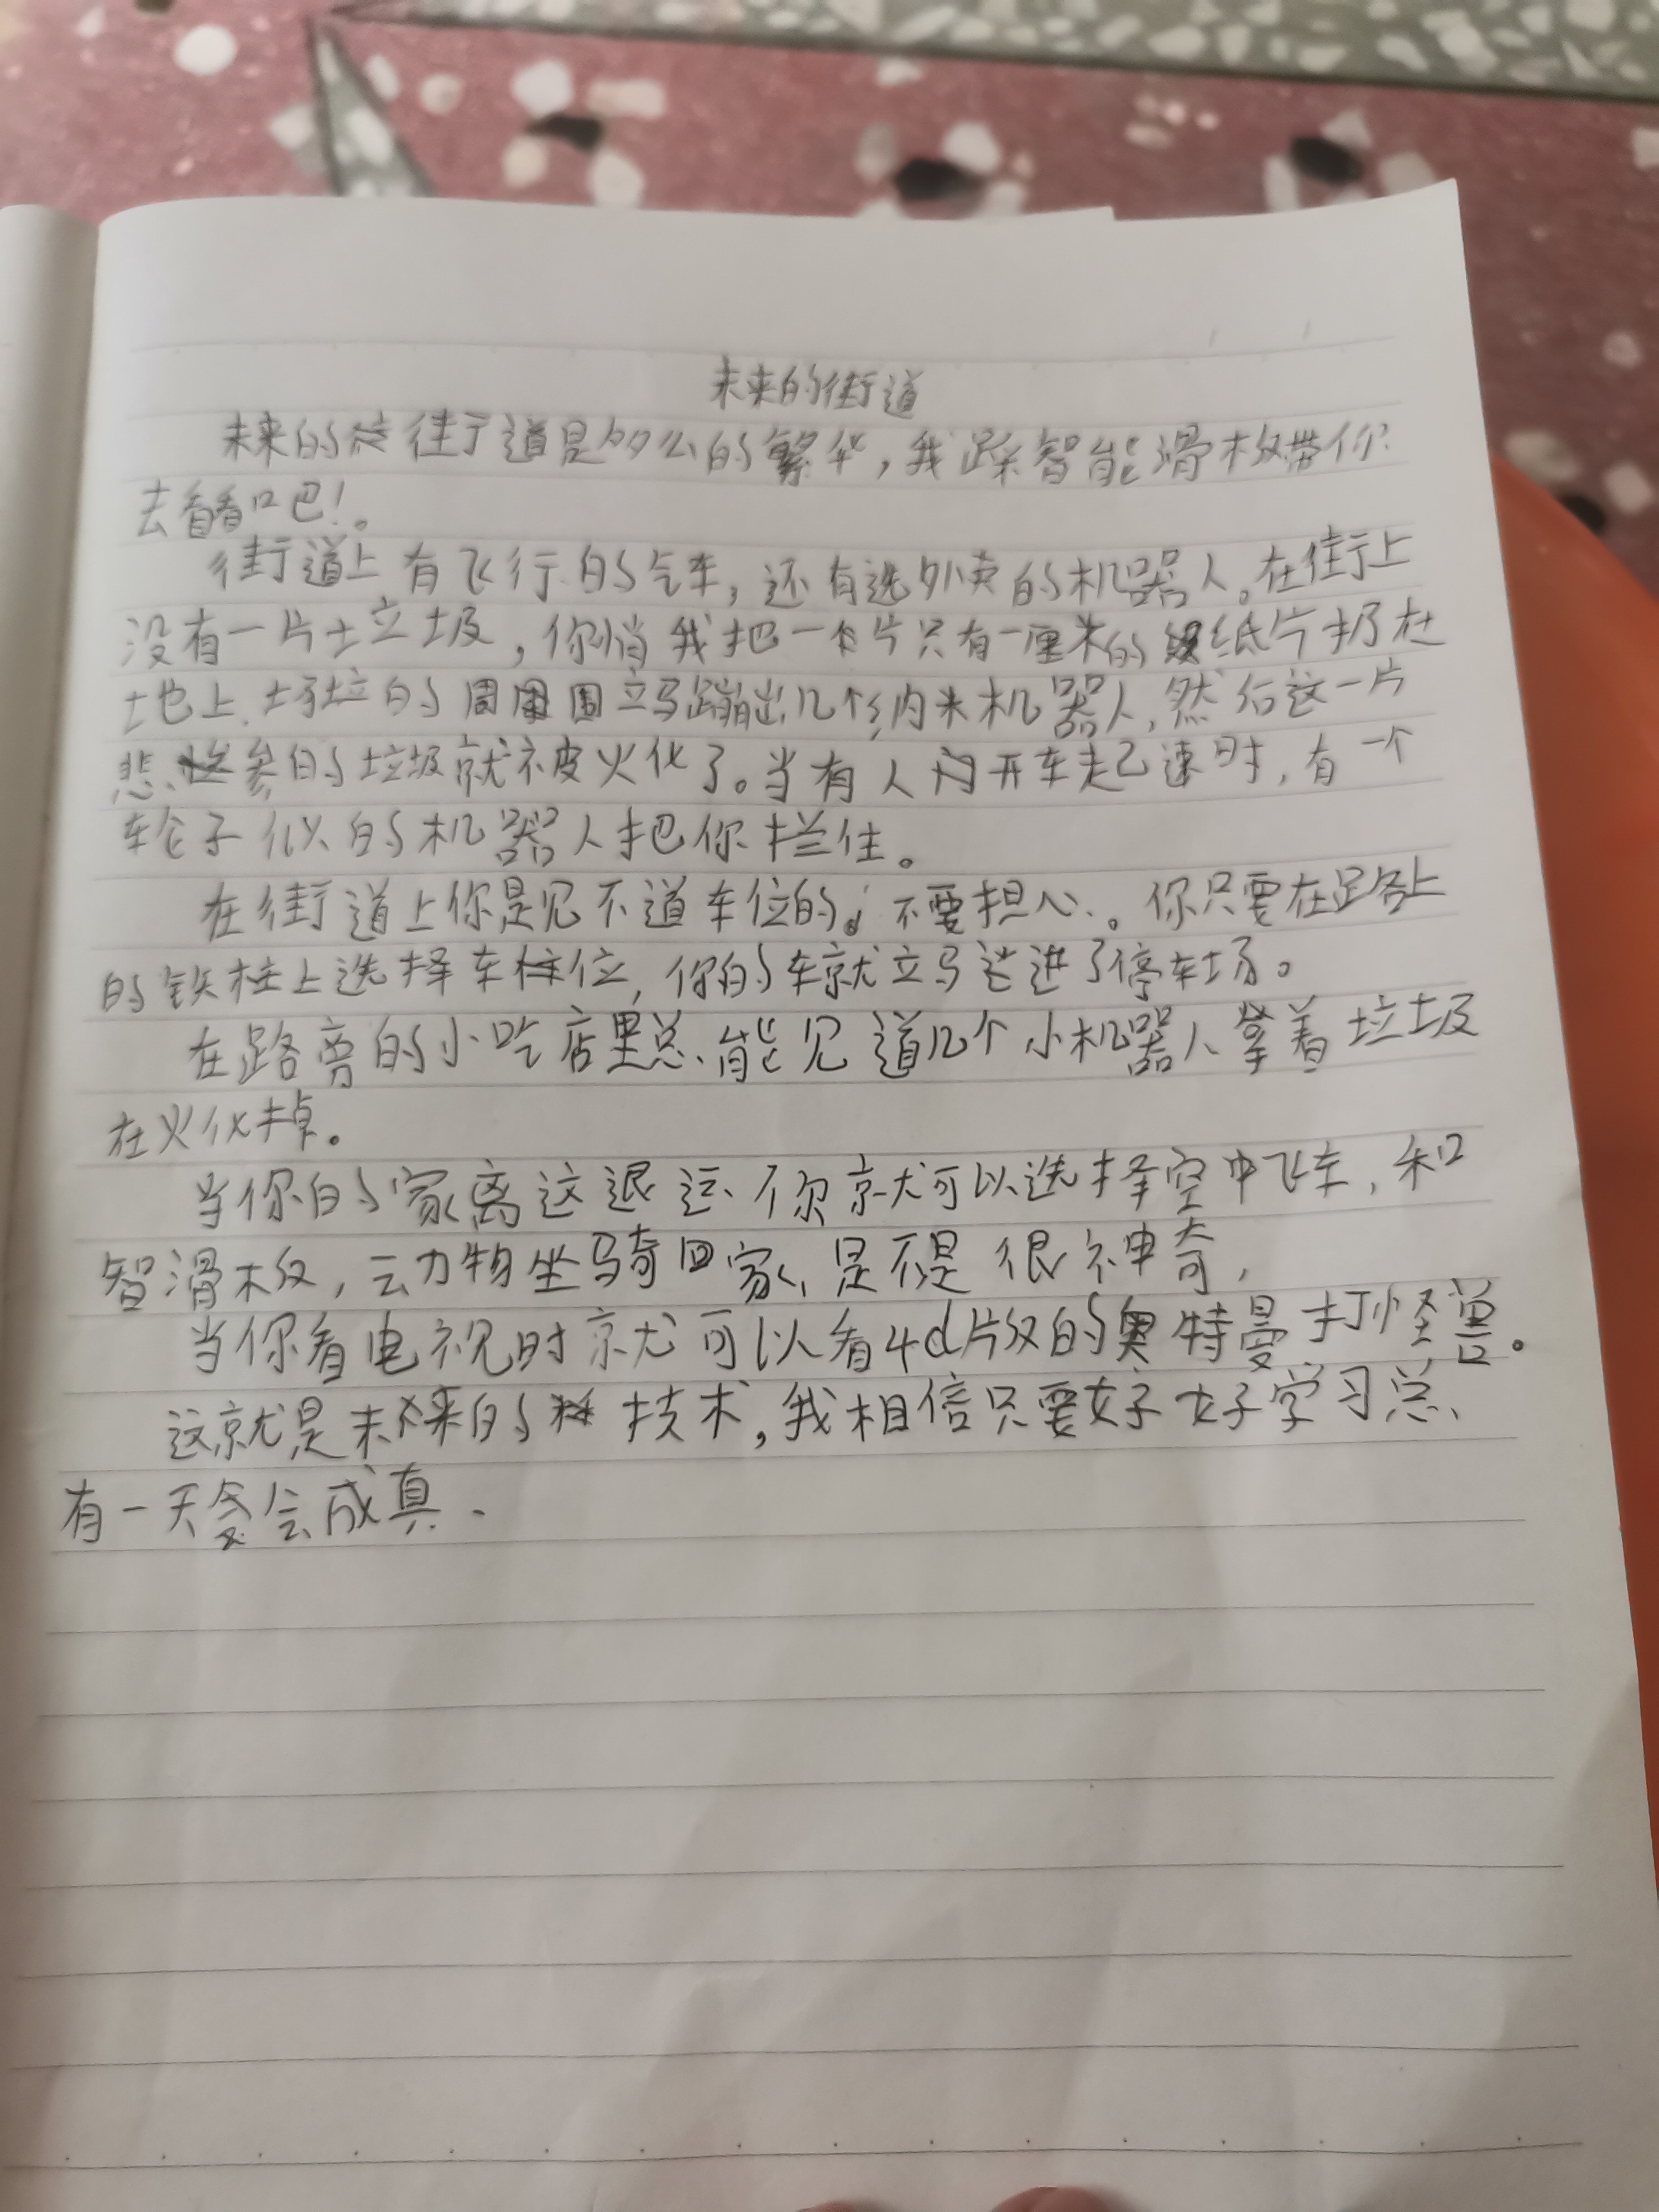 未来的街道
未来的街道是多么的繁华，我踩智能滑板带你
去看看吧！。
街道上有飞行的汽车，还有选外卖的机器人。在街上
没有一片土立圾，你悄我把一片只有一厘米的纸片扔在
地上.垃的周围立马蹦出几个纳米机器人，然后这一片
悲惨的垃圾就被火化了。当有人开车起速时，有一个
轮子似的机器人把你拦住。
在街道上你是见不道车位的。不要担心。你只要在路上
的铁柱上选择车位，你的车就立马进了停车场。
在路旁的小吃店里总能见道几个小机器人拿着垃圾
在火化掉。
当你的家离这退远你就可以选择空中飞车，和
智滑板，动物坐骑回家，是不是很神奇，
当你看电视时就可以看4d片段的奥特曼打怪兽。
这就是未来的技术，我相信只要好好学习总
有一天会成真.